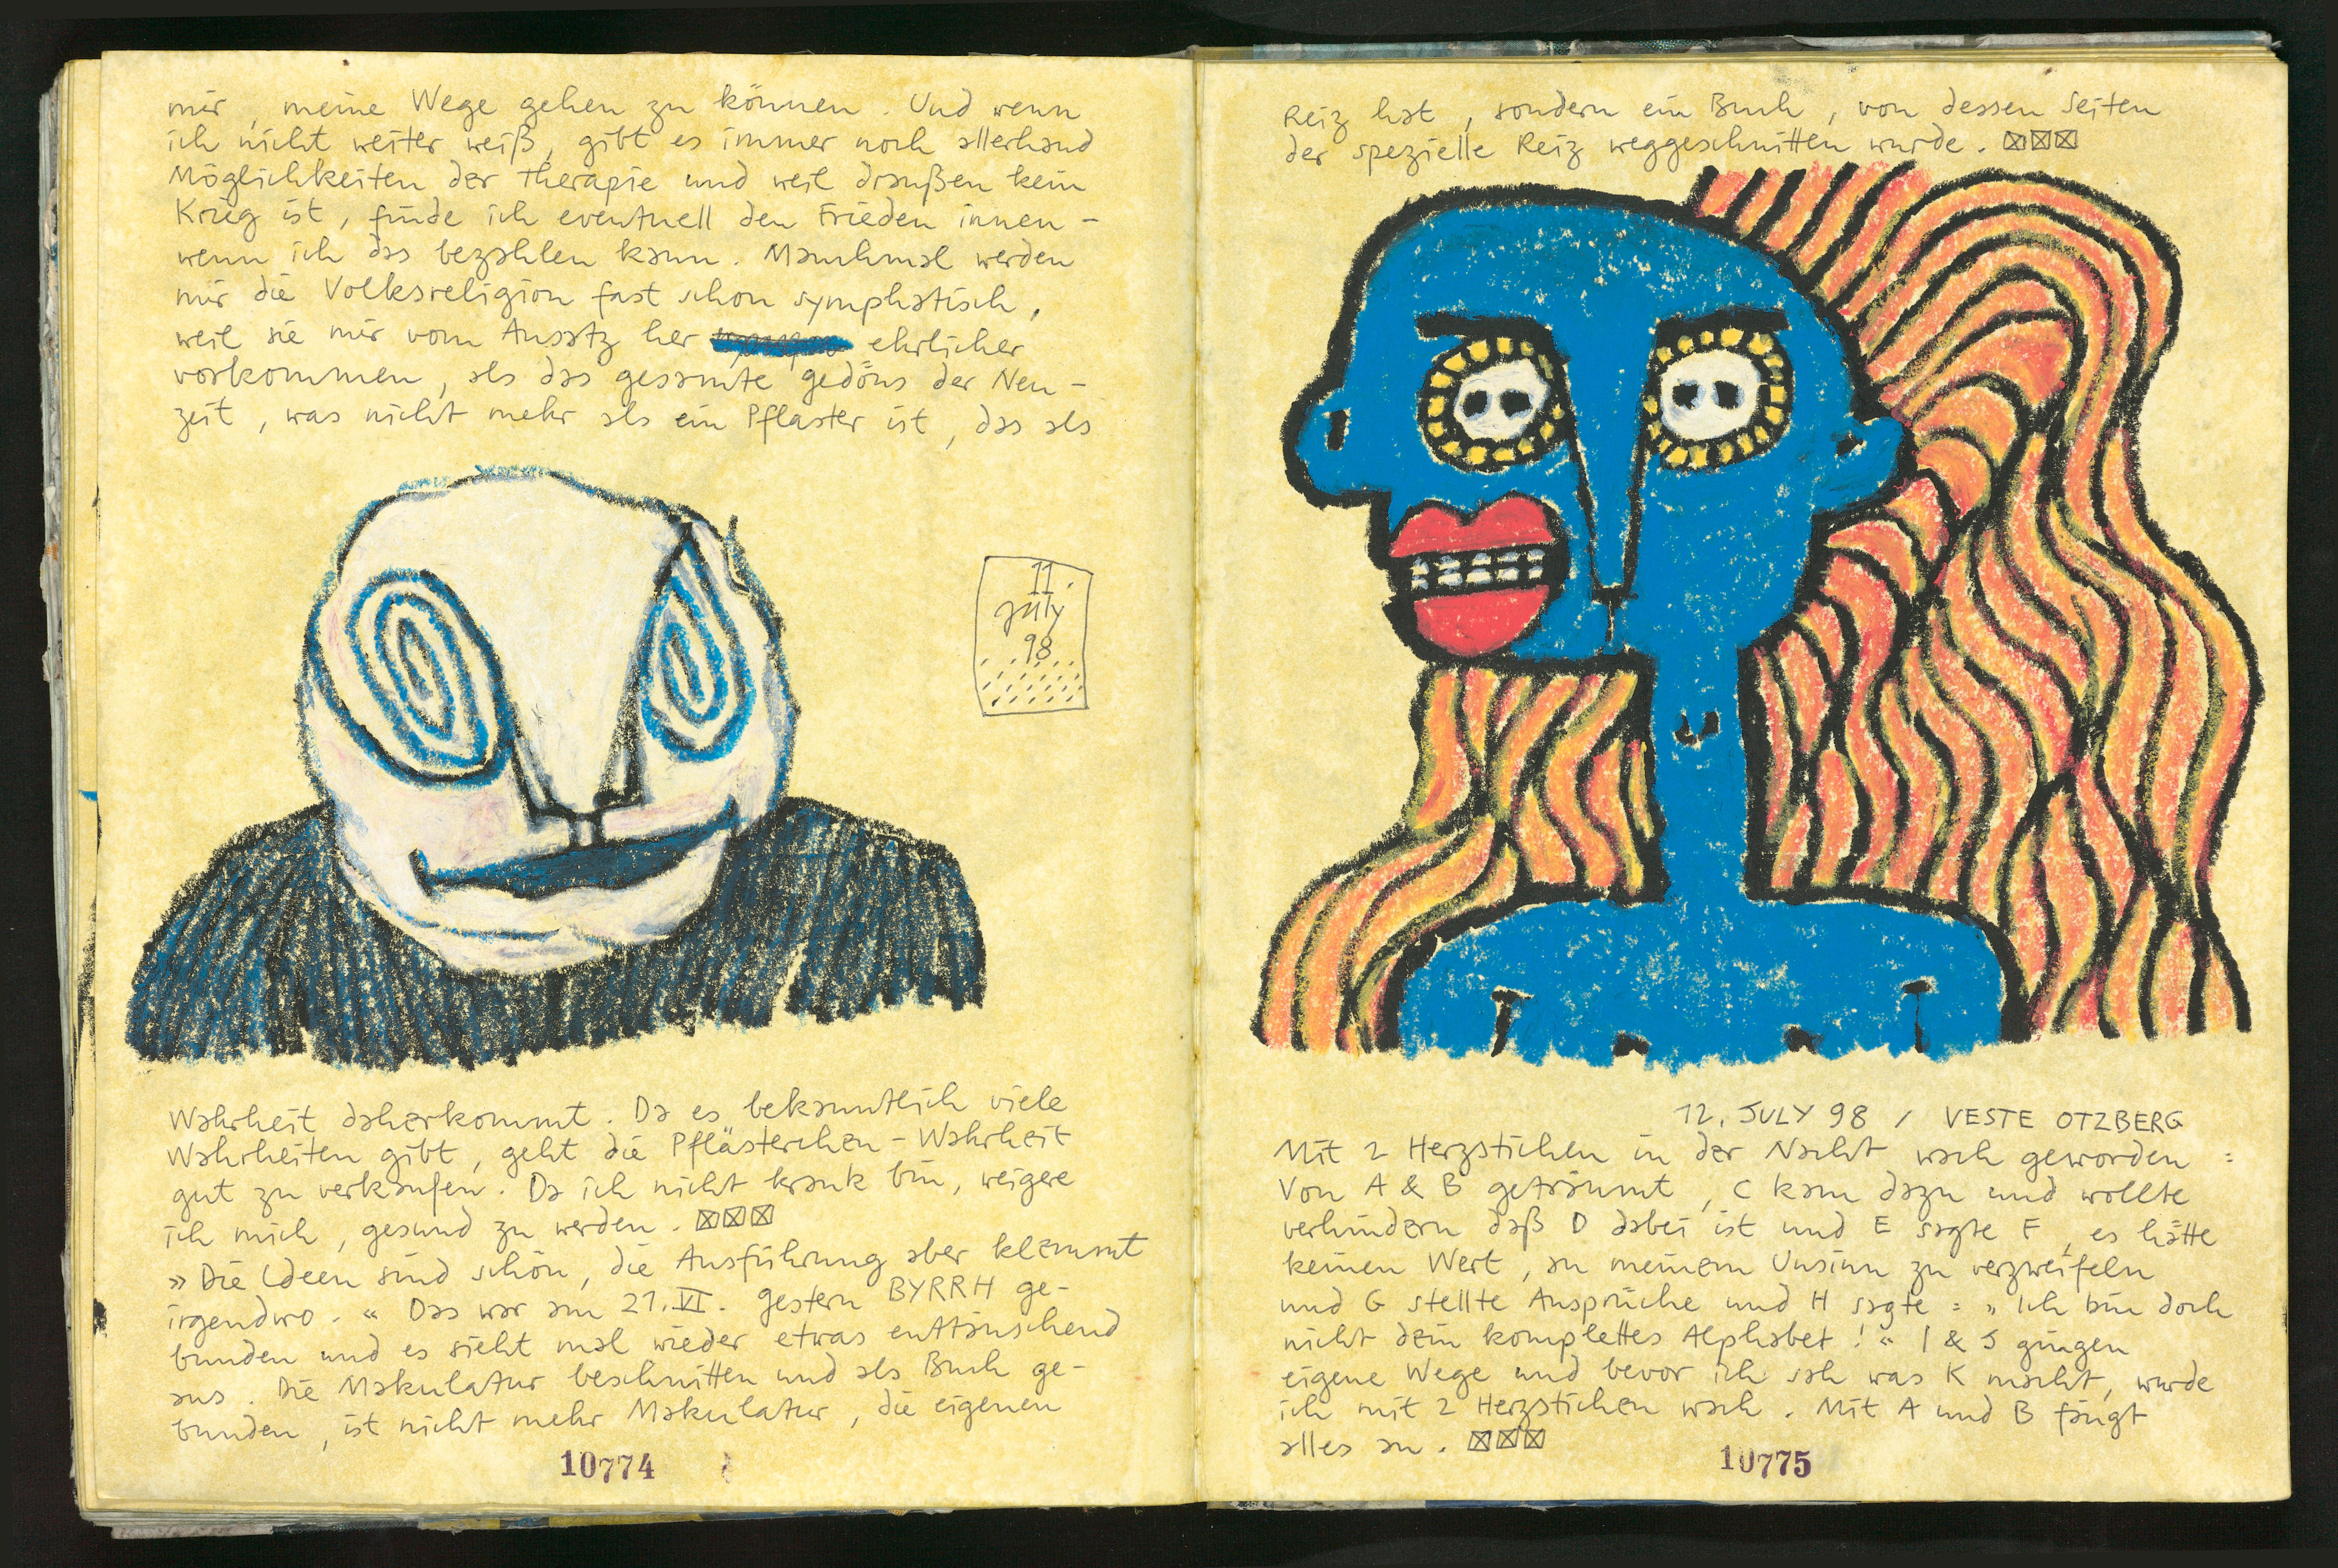 mir, meine Wege gehen zu können. Und wenn
ich nicht weiter weiß, gibt es immer noch allerhand
Möglichkeiten der Therapie und weil draußen kein
Krieg ist, finde ich eventuell den Frieden innen -
wenn ich das bezahlen kann. Manchmal werden
mir die Volksreligion fast schon symphatisch,
weil sie mir vom Ansatz her ehrlicher
vorkommen, als das gesamte gedöns der Neu-
zeit, was nicht mehr als ein Pflaster ist, das als
11.
July
98
Wahrheit daherkommt. Da es bekanntlich viele
Wahrheiten gibt, geht die Pflästerchen-Wahrheit
gut zu verkaufen. Da ich nicht krank bin, weigere
ich mich, gesund zu werden. ☒☒☒
»Die Ideen sind schön, die Ausführung aber klemmt
irgendwo.« Das war am 21.VI. gestern BYRRH ge-
bunden und es sieht mal wieder etwas enttäuschend
aus. Die Makulatur beschnitten und als Buch ge-
bunden, ist nicht mehr Makulatur, die eigenen
10774
Reiz hat, sondern ein Buch, von dessen Seiten
der spezielle Reiz weggeschnitten wurde. ☒☒☒
12. JULY 98 / VESTE OTZBERG
Mit 2 Herzstichen in der Nacht wach geworden:
Von A & B geträumt, C kam dazu und wollte
verhindern daß D dabei ist und E sagte F, es hätte
keinen Wert, an meinem Unsinn zu verzweifeln
und G stellte Ansprüche und H sagte: »Ich bin doch
nicht dein komplettes Alphabet!« I & J gingen
eigene Wege und bevor ich sah was K macht, wurde
ich mit 2 Herzstichen wach. Mit A und B fängt
alles an. ☒☒☒
10775